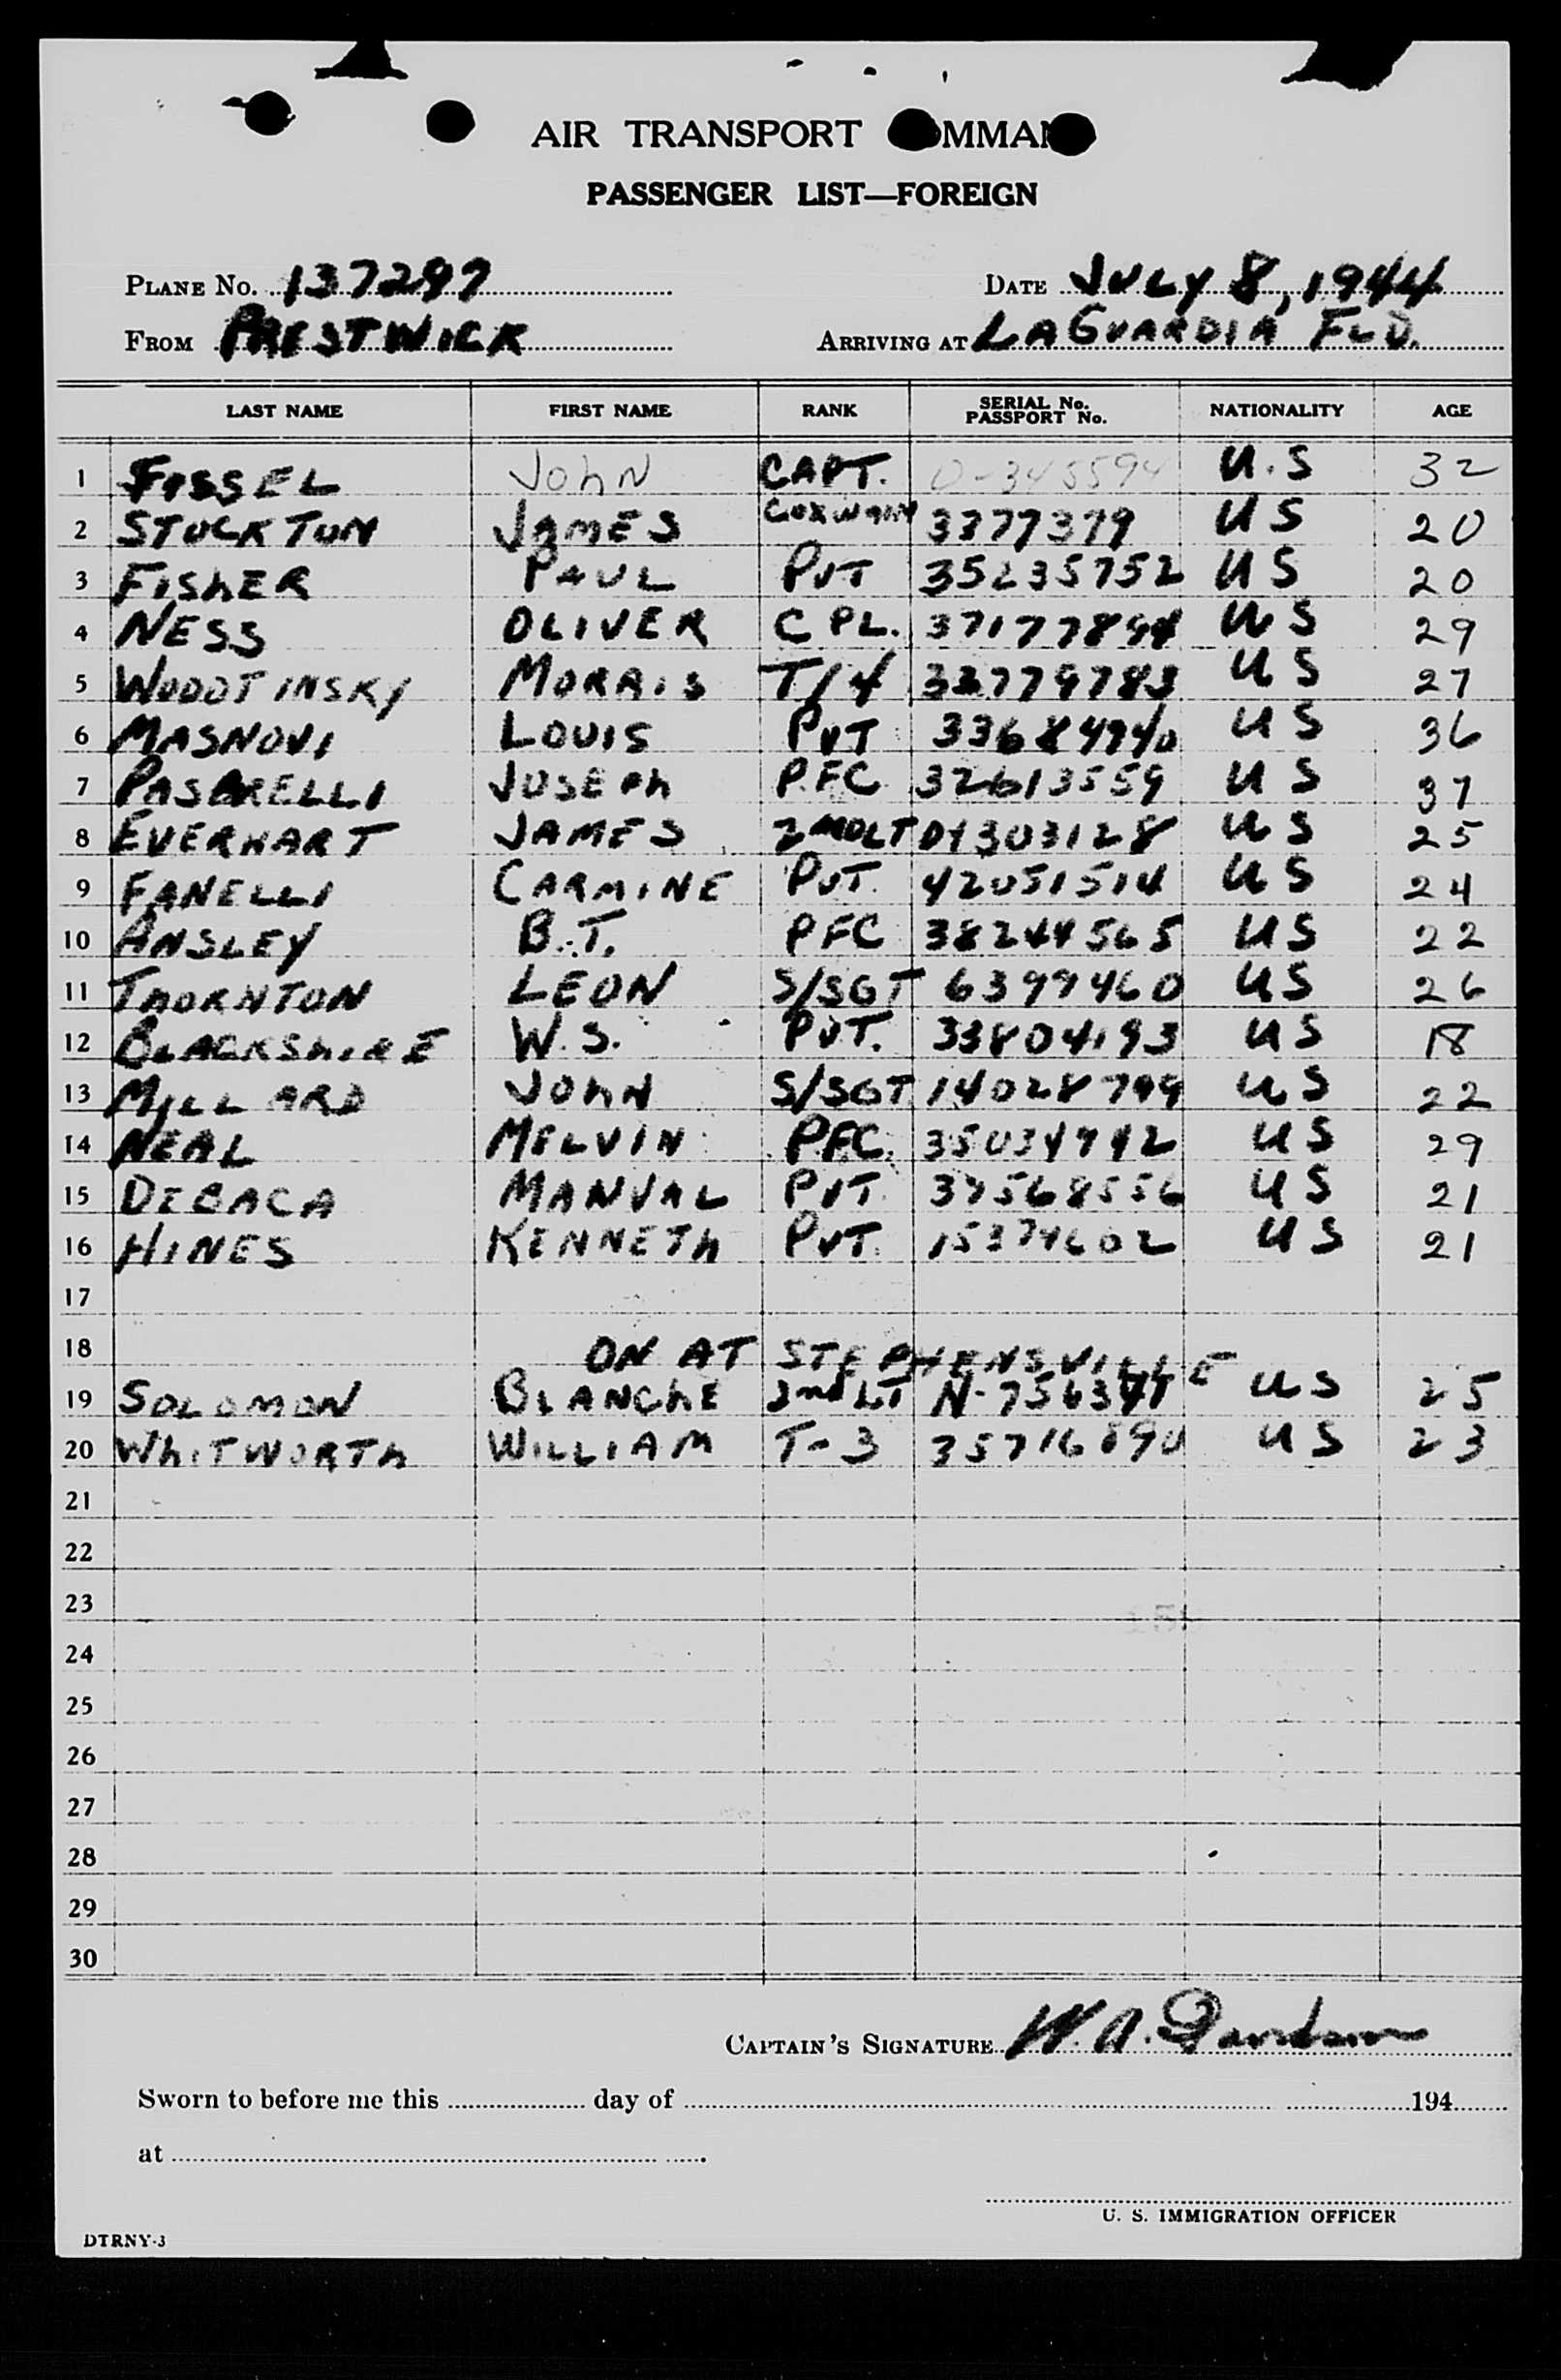 AIR TRANSPORT COMMAND
PASSENGER LIST—FOREIGN
PLANE No. 137297 DATE JULY 8, 1944
FROM PRESTWICK ARRIVING AT LAGUARDIA FLD.
LAST NAME FIRST NAME RANK SERIAL No. PASSPORT No. NATIONALITY AGE
1 FISSEL JOHN CAPT. O-345594 U.S 32
2 STOCKTON JAMES COXWAIN 3377379 US 20
3 FISHER PAUL PVT 35235752 US 20
4 NESS OLIVER CPL. 37177894 US 29
5 WODOTINSKY MORRIS T/4 33779783 US 27
6 MASNOVI LOUIS PVT 33684940 US 36
7 PASARELLI JOSEPH PFC 32613559 US 37
8 EVERHART JAMES 2NDLT O1303128 US 25
9 FANELLI CARMINE PVT. 42051514 US 24
10 ANSLEY B.T. PFC 38244565 US 22
11 THORNTON LEON S/SGT 6399460 US 26
12 BLACKSHIRE W.S. PVT. 33804193 US 18
13 MILLARD JOHN S/SGT 14028799 US 22
14 NEAL MELVIN PFC. 35034942 US 29
15 DEBACA MANUAL PVT. 37568556 US 21
16 HINES KENNETH PVT. 15374602 US 21
17
18 ON AT STEPHENSVILLE
19 SOLOMON BLANCHE 2nd LT US 25
20 WHITWORTH WILLIAM T-3 35716890 US 23
21
22
23
24
25
26
27
28
29
30
CAPTAIN'S SIGNATURE W. A. Davidson
Sworn to before me this day of 194
at
U. S. IMMIGRATION OFFICER
DTRNY-3